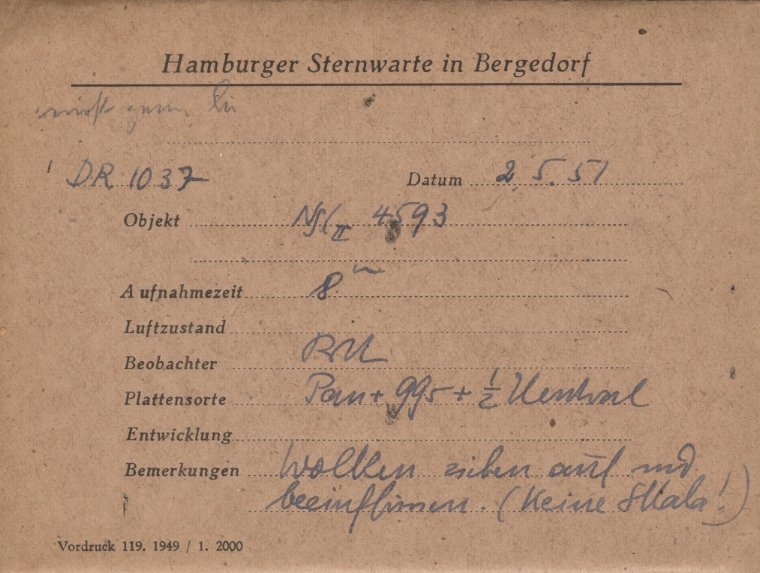 Hamburger Sternwarte in Bergedorf
DR 1037 Datum 2.5.51
Objekt 4593
Aufnahmezeit 8 m
Luftzustand
Beobachter
Plattensorte Pan + 99 + ½ Neutral
Entwicklung
Bemerkungen Wolken ziehen auf und
beeinflussen. (Keine Skala!)
Vordruck 119. 1949 / 1. 2000